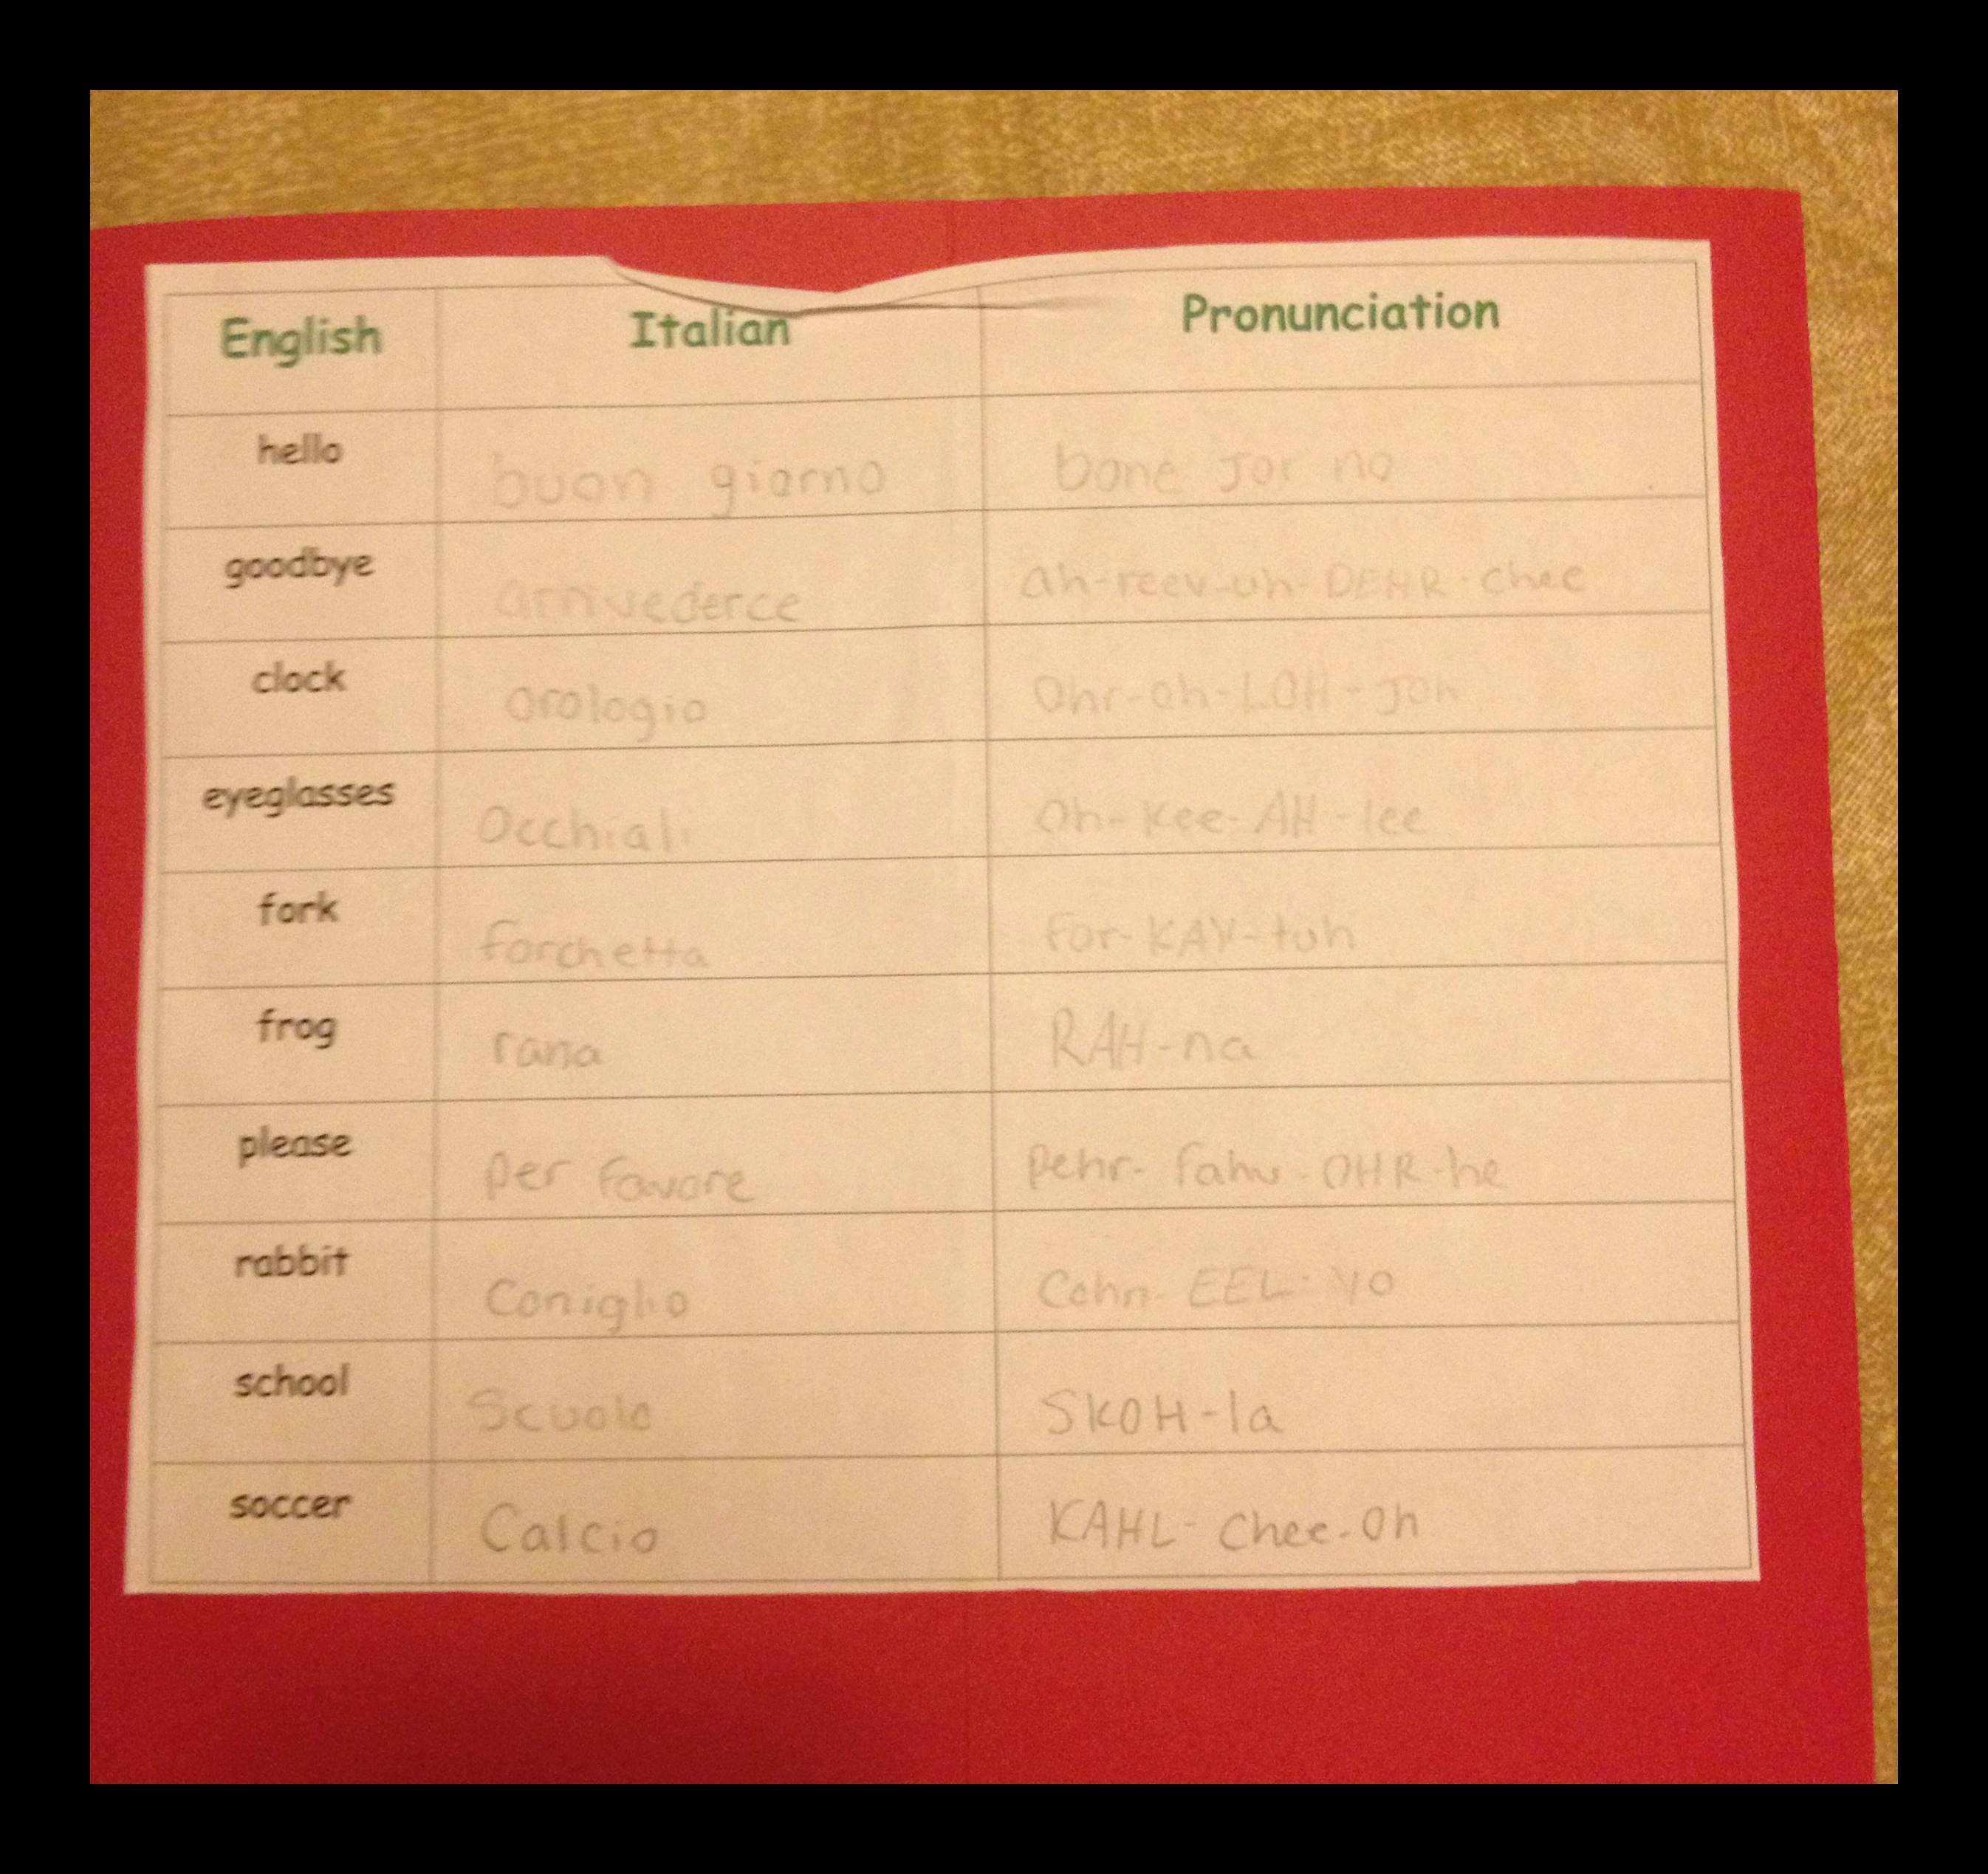 English Italian Pronunciation
hello buon giorno bone Jor no
goodbye arrivederce ah-reev-uh-DEHR-chee
clock orologio Ohr-oh-LOH-joh
eyeglasses Occhiali Oh-Kee-AH-lee
fork forchetta for-KAY-tuh
frog rana RAH-na
please per favore pehr-fahv-OHR-he
rabbit Coniglio Cohn-EEL-yo
school Scuola SKOH-la
soccer Calcio KAHL-Chee-Oh